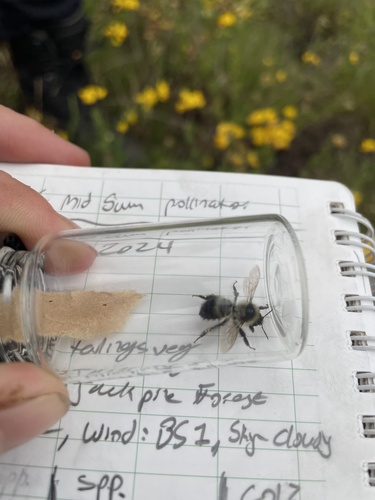 Mid Sum pollinator
2024
tailings veg
Jack pine Forest
, Wind: BS1, Sky-Cloudy
spp.